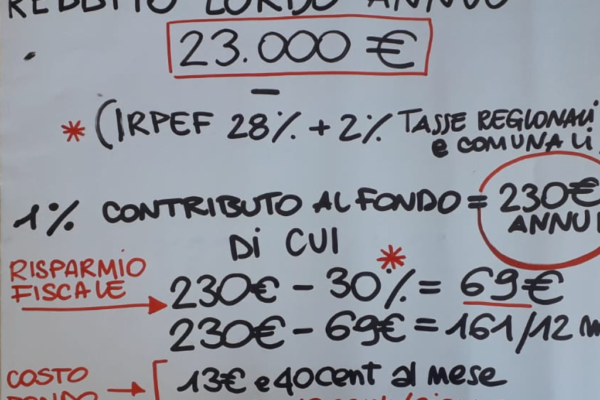 REDDITO LORDO ANNUO
23.000 €
* (IRPEF 28% + 2% TASSE REGIONALI
e COMUNALI
1% CONTRIBUTO AL FONDO = 230€
ANNUI
DI CUI
RISPARMIO
FISCALE
230€ - 30%* = 69€
230€ - 69€ = 161/12 m
COSTO
13€ e 40cent al mese